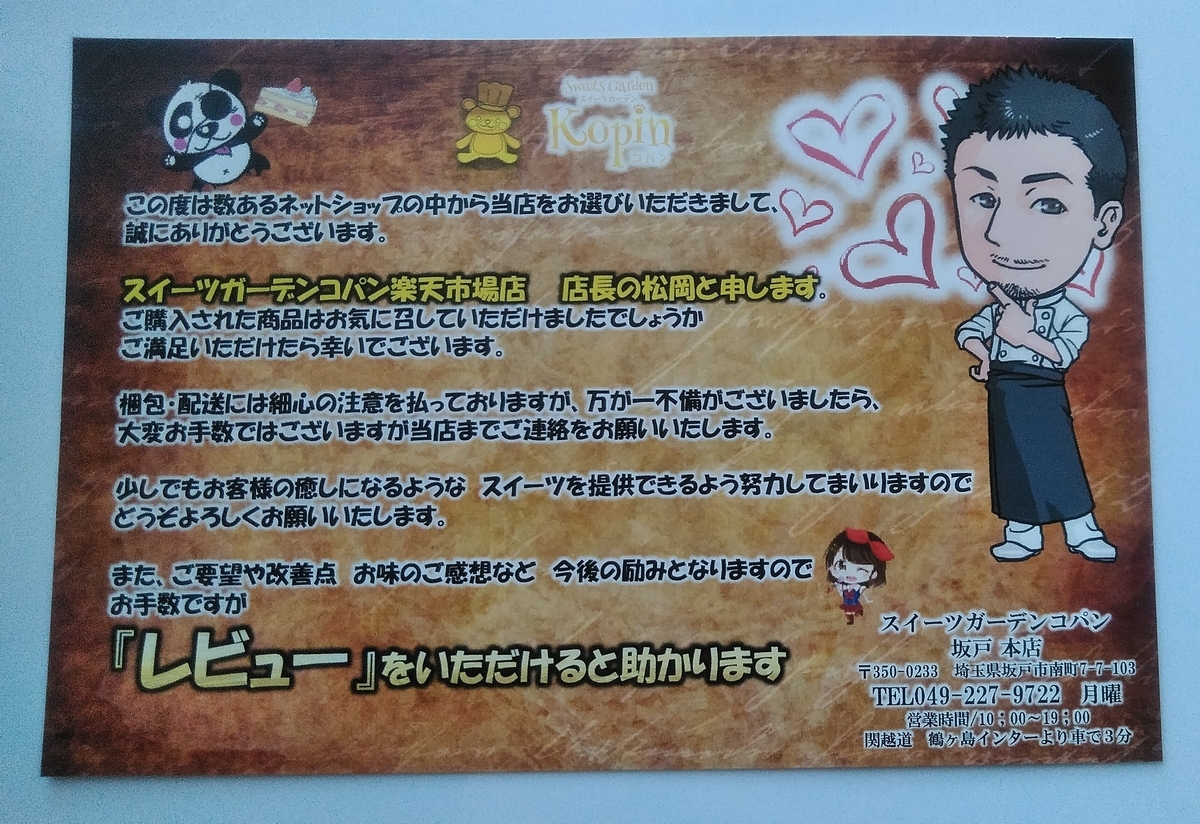 Sweets Garden
スイーツガーデン
Kopin
コパン
この度は数あるネットショップの中から当店をお選びいただきまして、
誠にありがとうございます。
スイーツガーデンコパン楽天市場店　店長の松岡と申します。
ご購入された商品はお気に召していただけましたでしょうか
ご満足いただけたら幸いでございます。
梱包・配送には細心の注意を払っておりますが、万が一不備がございましたら、
大変お手数ではございますが当店までご連絡をお願いいたします。
少しでもお客様の癒しになるような　スイーツを提供できるよう努力してまいりますので
どうぞよろしくお願いいたします。
また、ご要望や改善点　お味のご感想など　今後の励みとなりますので
お手数ですが
『レビュー』をいただけると助かります
スイーツガーデンコパン
坂戸 本店
〒350-0233　埼玉県坂戸市南町7-7-103
TEL049-227-9722　月曜
営業時間/10；00～19；00
関越道　鶴ヶ島インターより車で3分